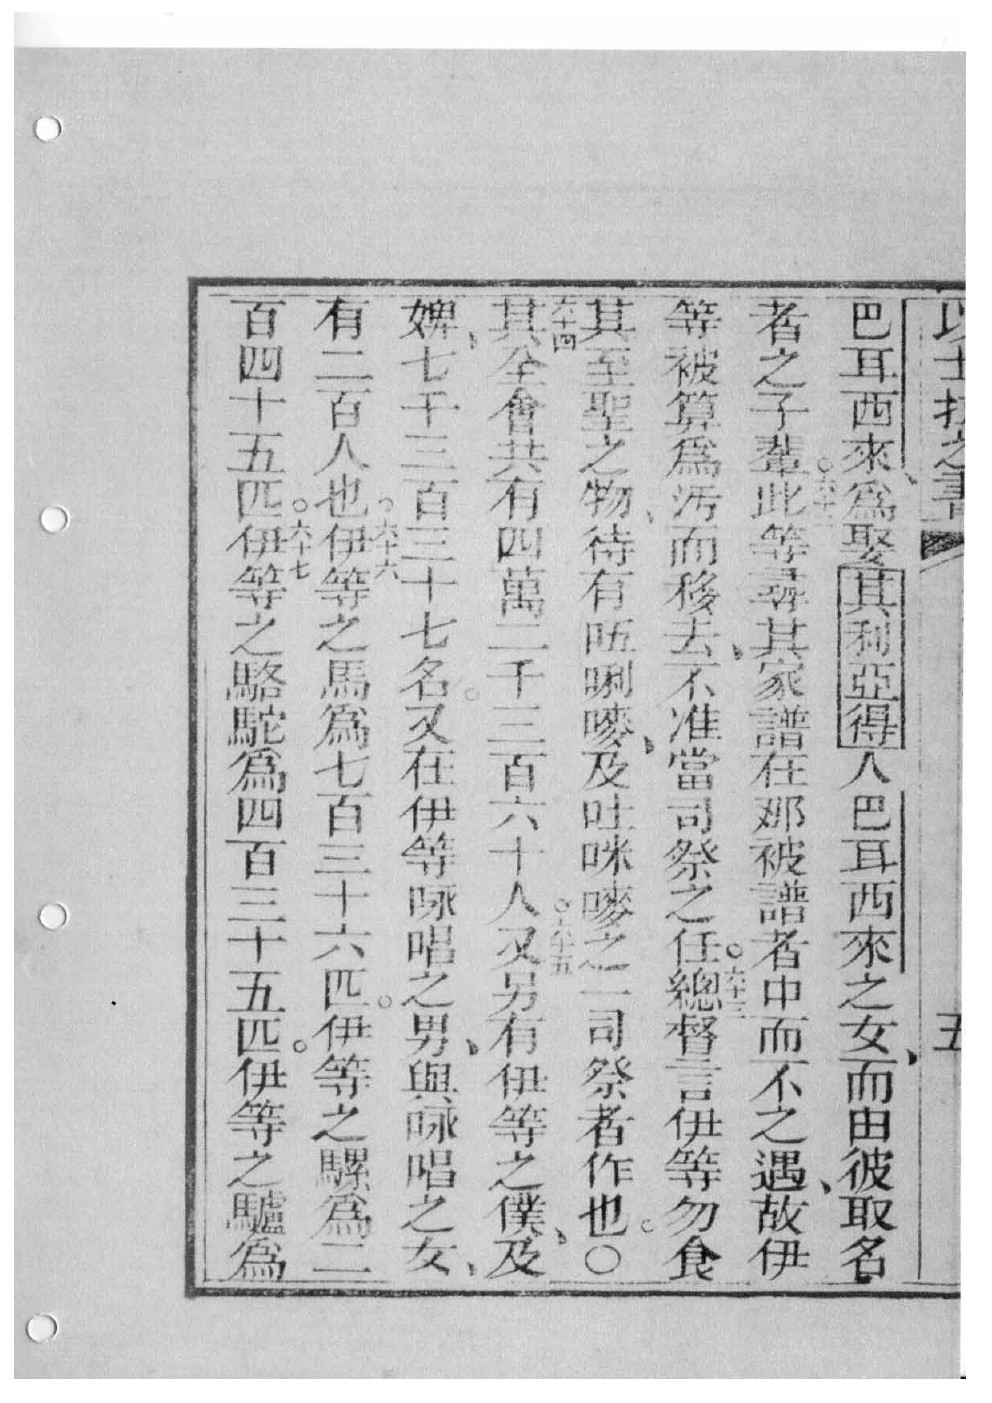 以士拉之書 五
巴耳西來爲娶其利亞得人巴耳西來之女、而由彼取名
者之子輩。六十二此等尋其家譜在那被譜者中而不之遇、故伊
等被算爲汚而移去、不准當司祭之任。六十三總督言伊等勿食
其至聖之物、待有㕶唎嘜、及吐咪嘜之一司祭者作也。〇
六十四其全會共有四萬二千三百六十人。六十五又另有伊等之僕、及
婢、七千三百三十七名。又在伊等咏唱之男、與咏唱之女、
有二百人也。六十六伊等之馬爲七百三十六匹。伊等之騾爲二
百四十五匹。六十七伊等之駱駝爲四百三十五匹。伊等之驢爲